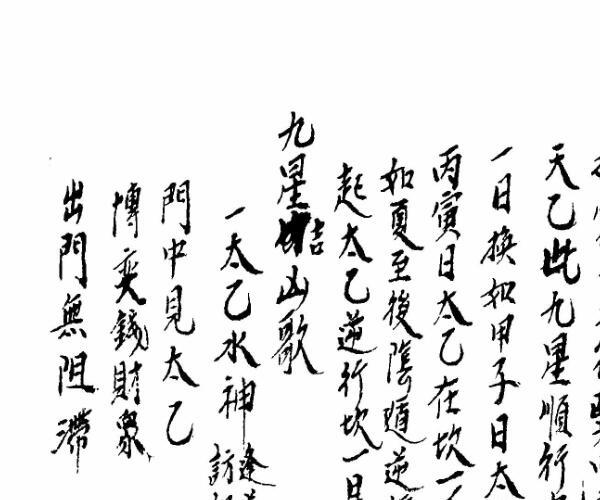 天乙此九星順行
一日換如甲子日太
丙寅日太乙在坎一
如夏至後陰遁逆
起太乙逆行坎一日
九星吉山歌
一太乙水神逢
訪
門中見太乙
博奕錢財
出門無阻滯